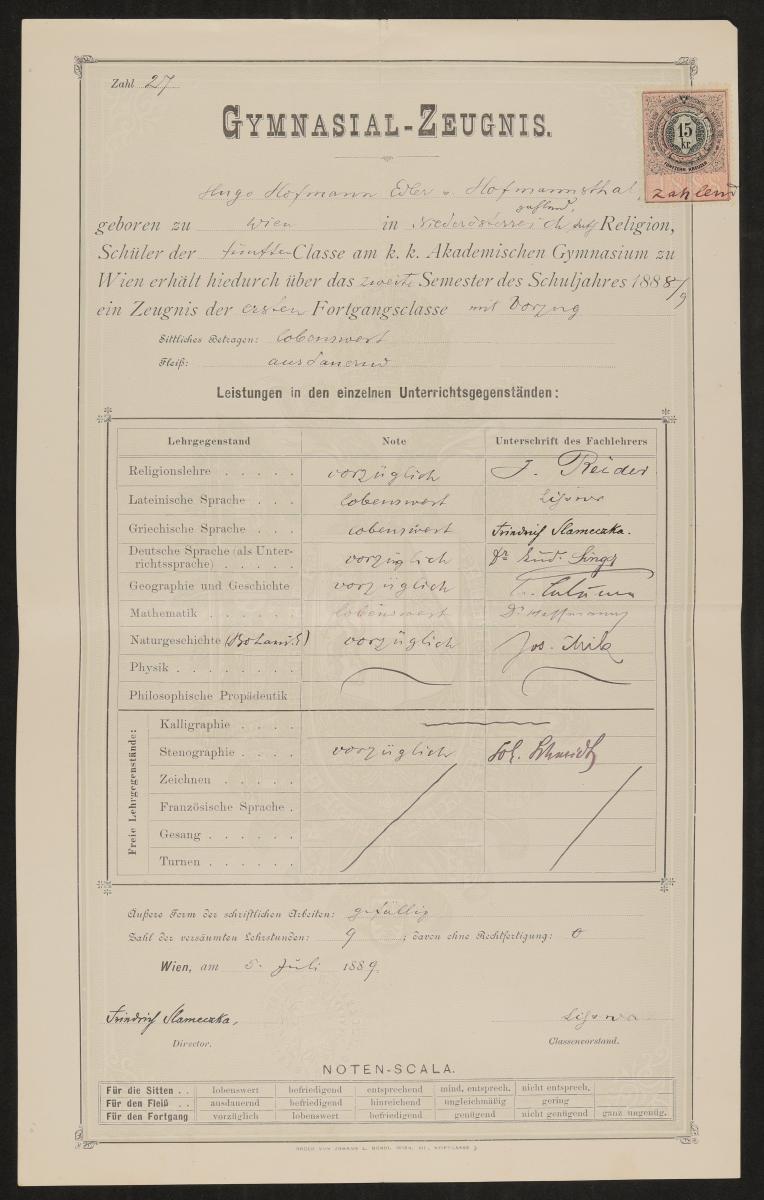 Zahl 27
GYMNASIAL-ZEUGNIS.
15
kr.
FÜNFZEHN KREUZER
zahlend
Hugo Hofmann Edler v. Hofmannsthal,
zahlend,
geboren zu Wien in Niederösterreich, kath. Religion,
Schüler der fünften Classe am k. k. Akademischen Gymnasium zu
Wien erhält hiedurch über das zweite Semester des Schuljahres 1888/9
ein Zeugnis der ersten Fortgangsclasse mit Vorzug
Sittliches Betragen: lobenswert
Fleiß: ausdauernd
Leistungen in den einzelnen Unterrichtsgegenständen:
Lehrgegenstand Note Unterschrift des Fachlehrers
Religionslehre . . . . . vorzüglich J. Reider
Lateinische Sprache . . . lobenswert
Griechische Sprache . . . lobenswert Friedrich Slameczka.
Deutsche Sprache (als Unter-
richtssprache) . . . . . vorzüglich Dr Rud. Singer
Geographie und Geschichte vorzüglich
Mathematik . . . . . . lobenswert Dr Hoffmann
Naturgeschichte (Botanik) vorzüglich Jos. Mik
Physik . . . . . . .
Philosophische Propädeutik
Freie Lehrgegenstände:
Kalligraphie . . . .
Stenographie . . . . vorzüglich Schmidt
Zeichnen . . . . .
Französische Sprache .
Gesang . . . . . .
Turnen . . . . . .
Äußere Form der schriftlichen Arbeiten: gefällig
Zahl der versäumten Lehrstunden: 9 ; davon ohne Rechtfertigung: 0
Wien, am 5. Juli 1889.
Friedrich Slameczka,
Director. Classenvorstand.
NOTEN-SCALA.
Für die Sitten . . lobenswert befriedigend entsprechend mind. entsprech. nicht entsprech.
Für den Fleiß . . ausdauernd befriedigend hinreichend ungleichmäßig gering
Für den Fortgang vorzüglich lobenswert befriedigend genügend nicht genügend ganz ungenüg.